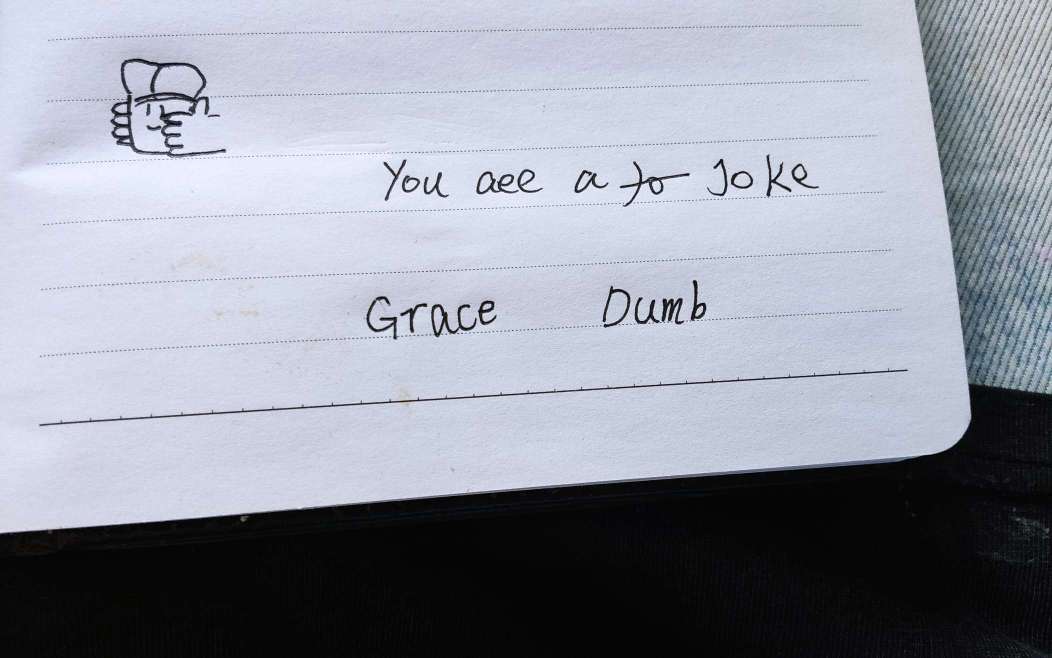 You aee a to Joke
Grace Dumb